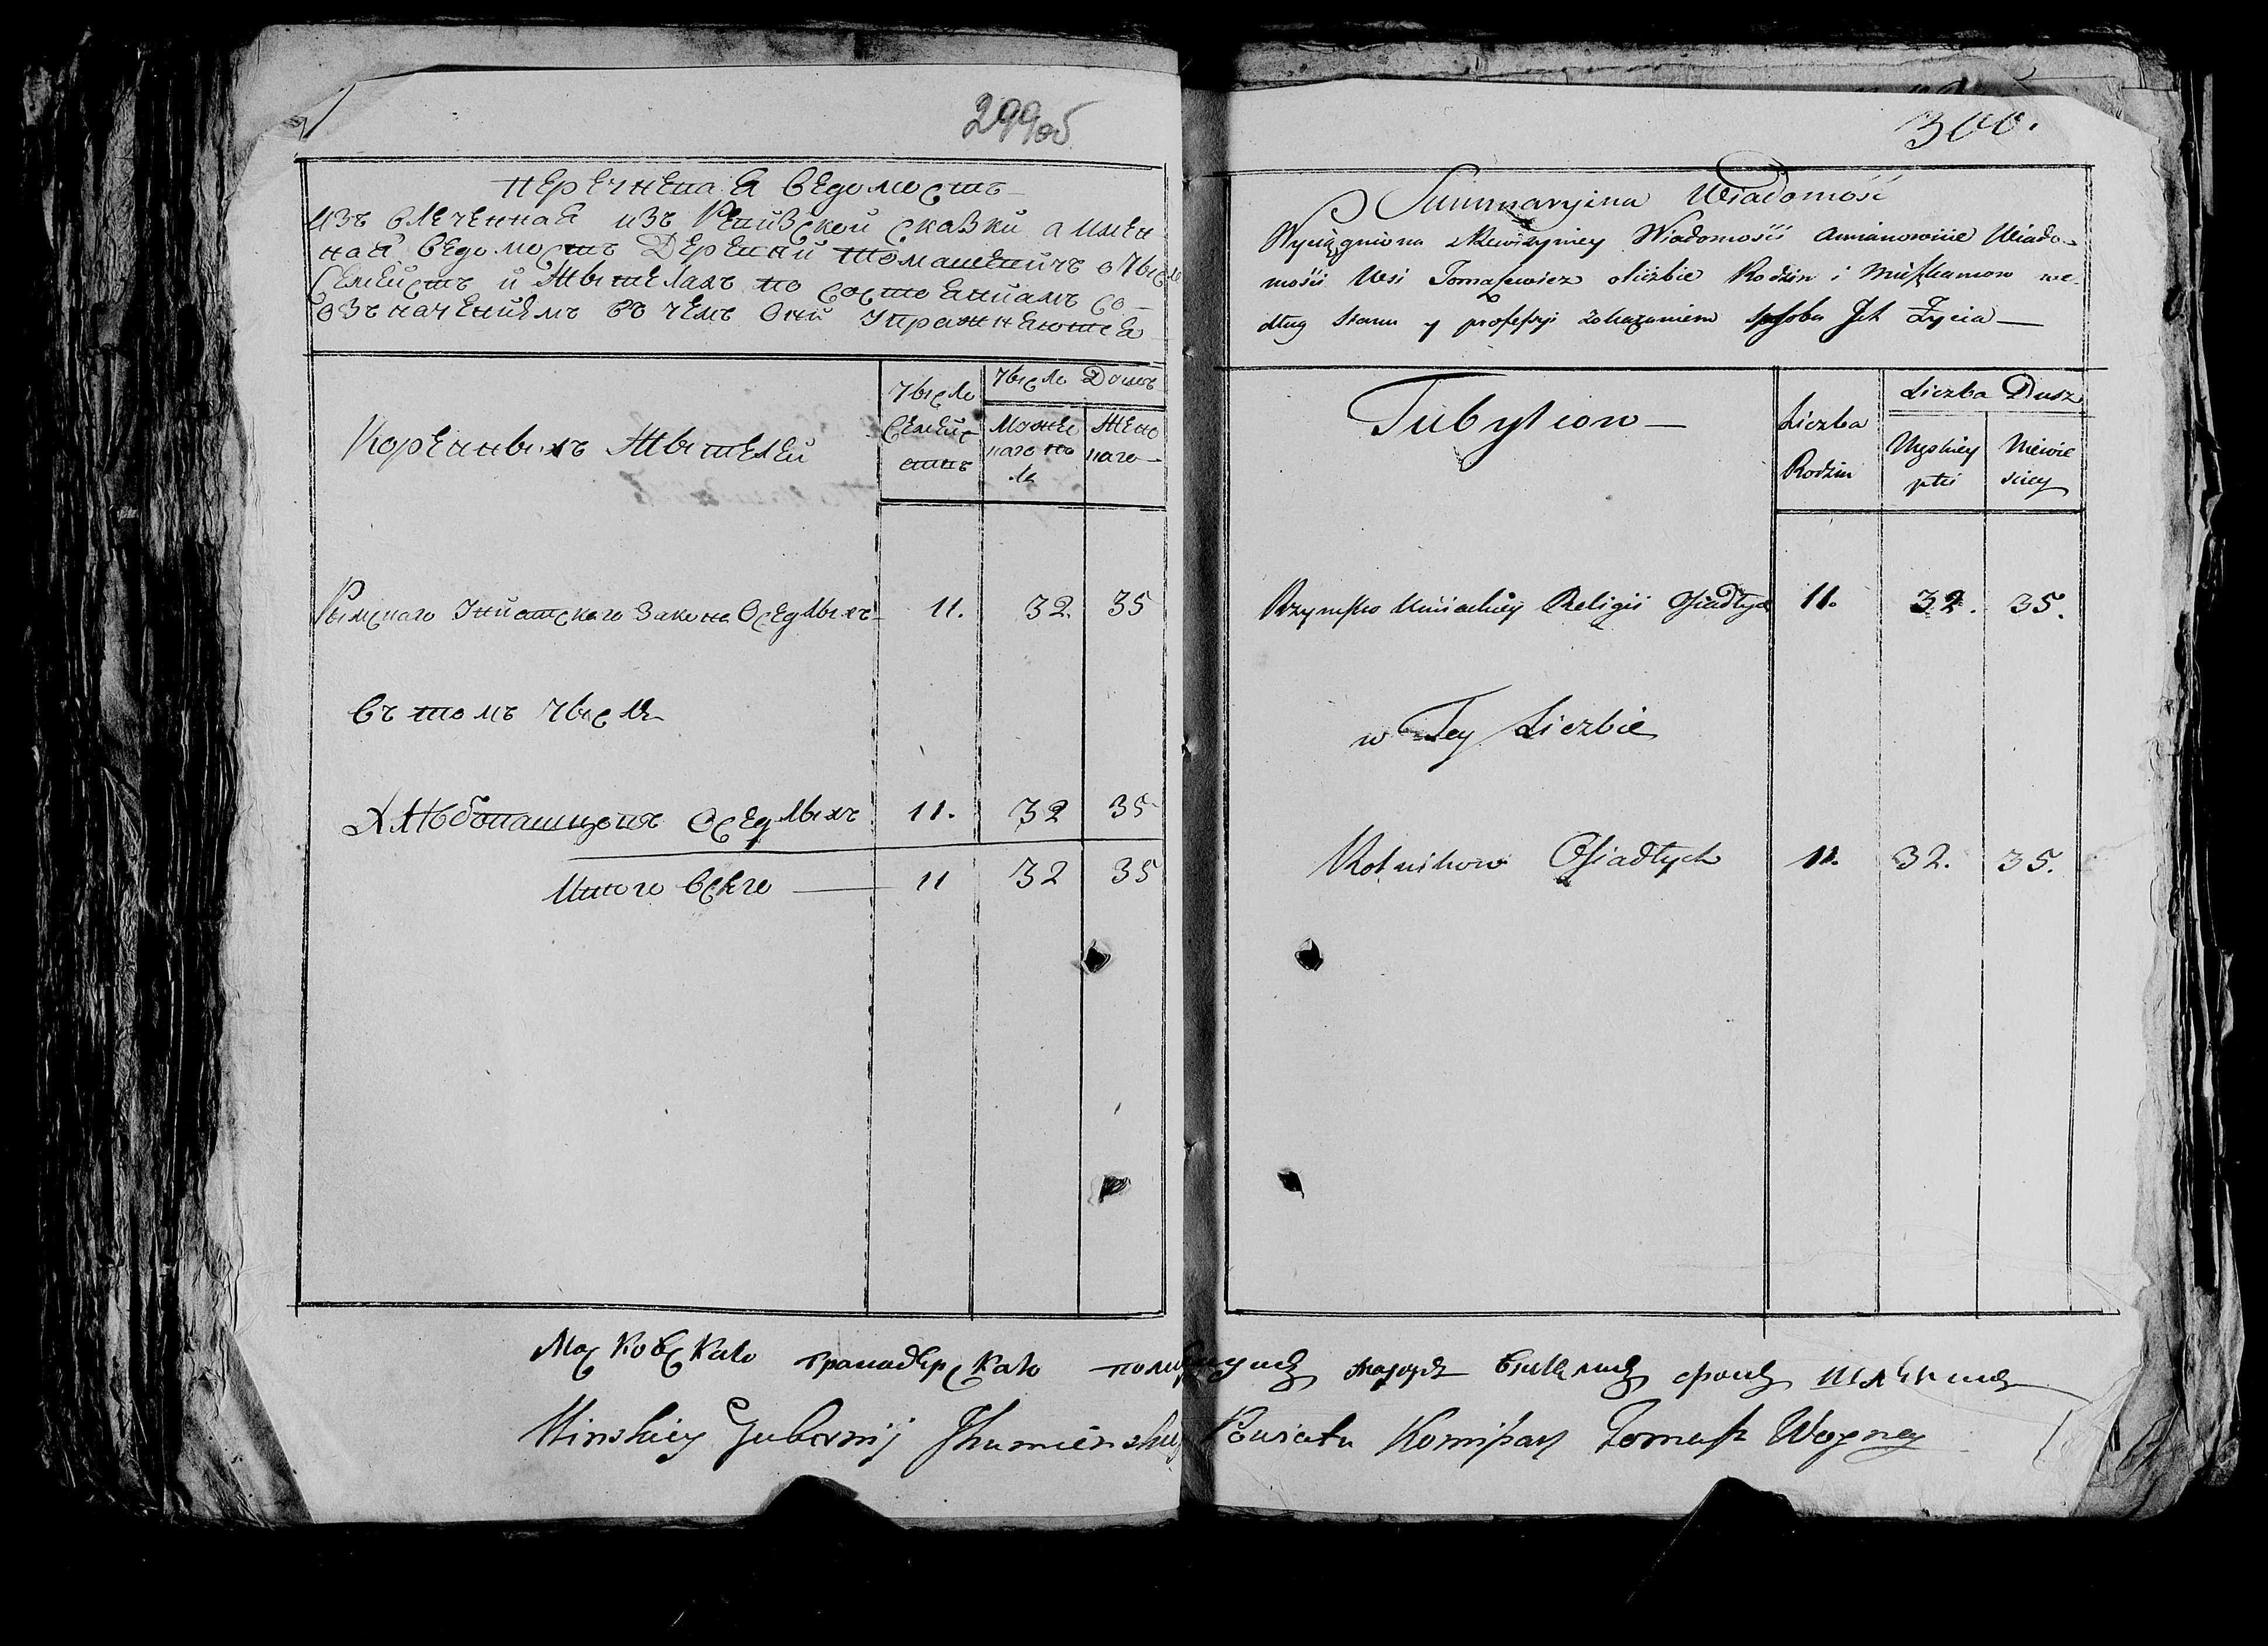 299об
Перечневая ведомость
Извлеченная изъ Ревизской сказки а имен
ная ведомость Деревни Томашевичъ о числе
семействъ и Жытеляхъ по состояниямъ со
озъначениемъ въ чемъ они упражняются
Коренныхъ Жытелей
Число Семействъ
Число Душъ
Мужескаго пола
Женскаго
Рымскаго Униатскаго Закона Оседлыхъ 11. 32. 35
Въ томъ числе
Хлѣбопашцовъ Оседлыхъ 11. 32 35
Итого всего 11 32 35
300.
Summaryina Wiadomość
Wyciągniona z Rewizyiney Wiadomości a mianowicie Wiado-
mości Wsi Tomaszewicz o liczbie Rodzin i Mieszkancow we-
dług Stanu y professyi z okazaniem sposobu Ich Życia
Tubylcow
Liczba Rodzin
Liczba Dusz
Męskiey płci
Niewiesciey
Rzymsko Uniackiey Religii Osiadłych 11. 32. 35.
w Tey Liczbie
Rolnikow Osiadłych 11. 32. 35.
Московскаго гранадерскаго
Minskiey Gubernij Jhumenskiey Powiatu Komisarz Tomasz Wogney